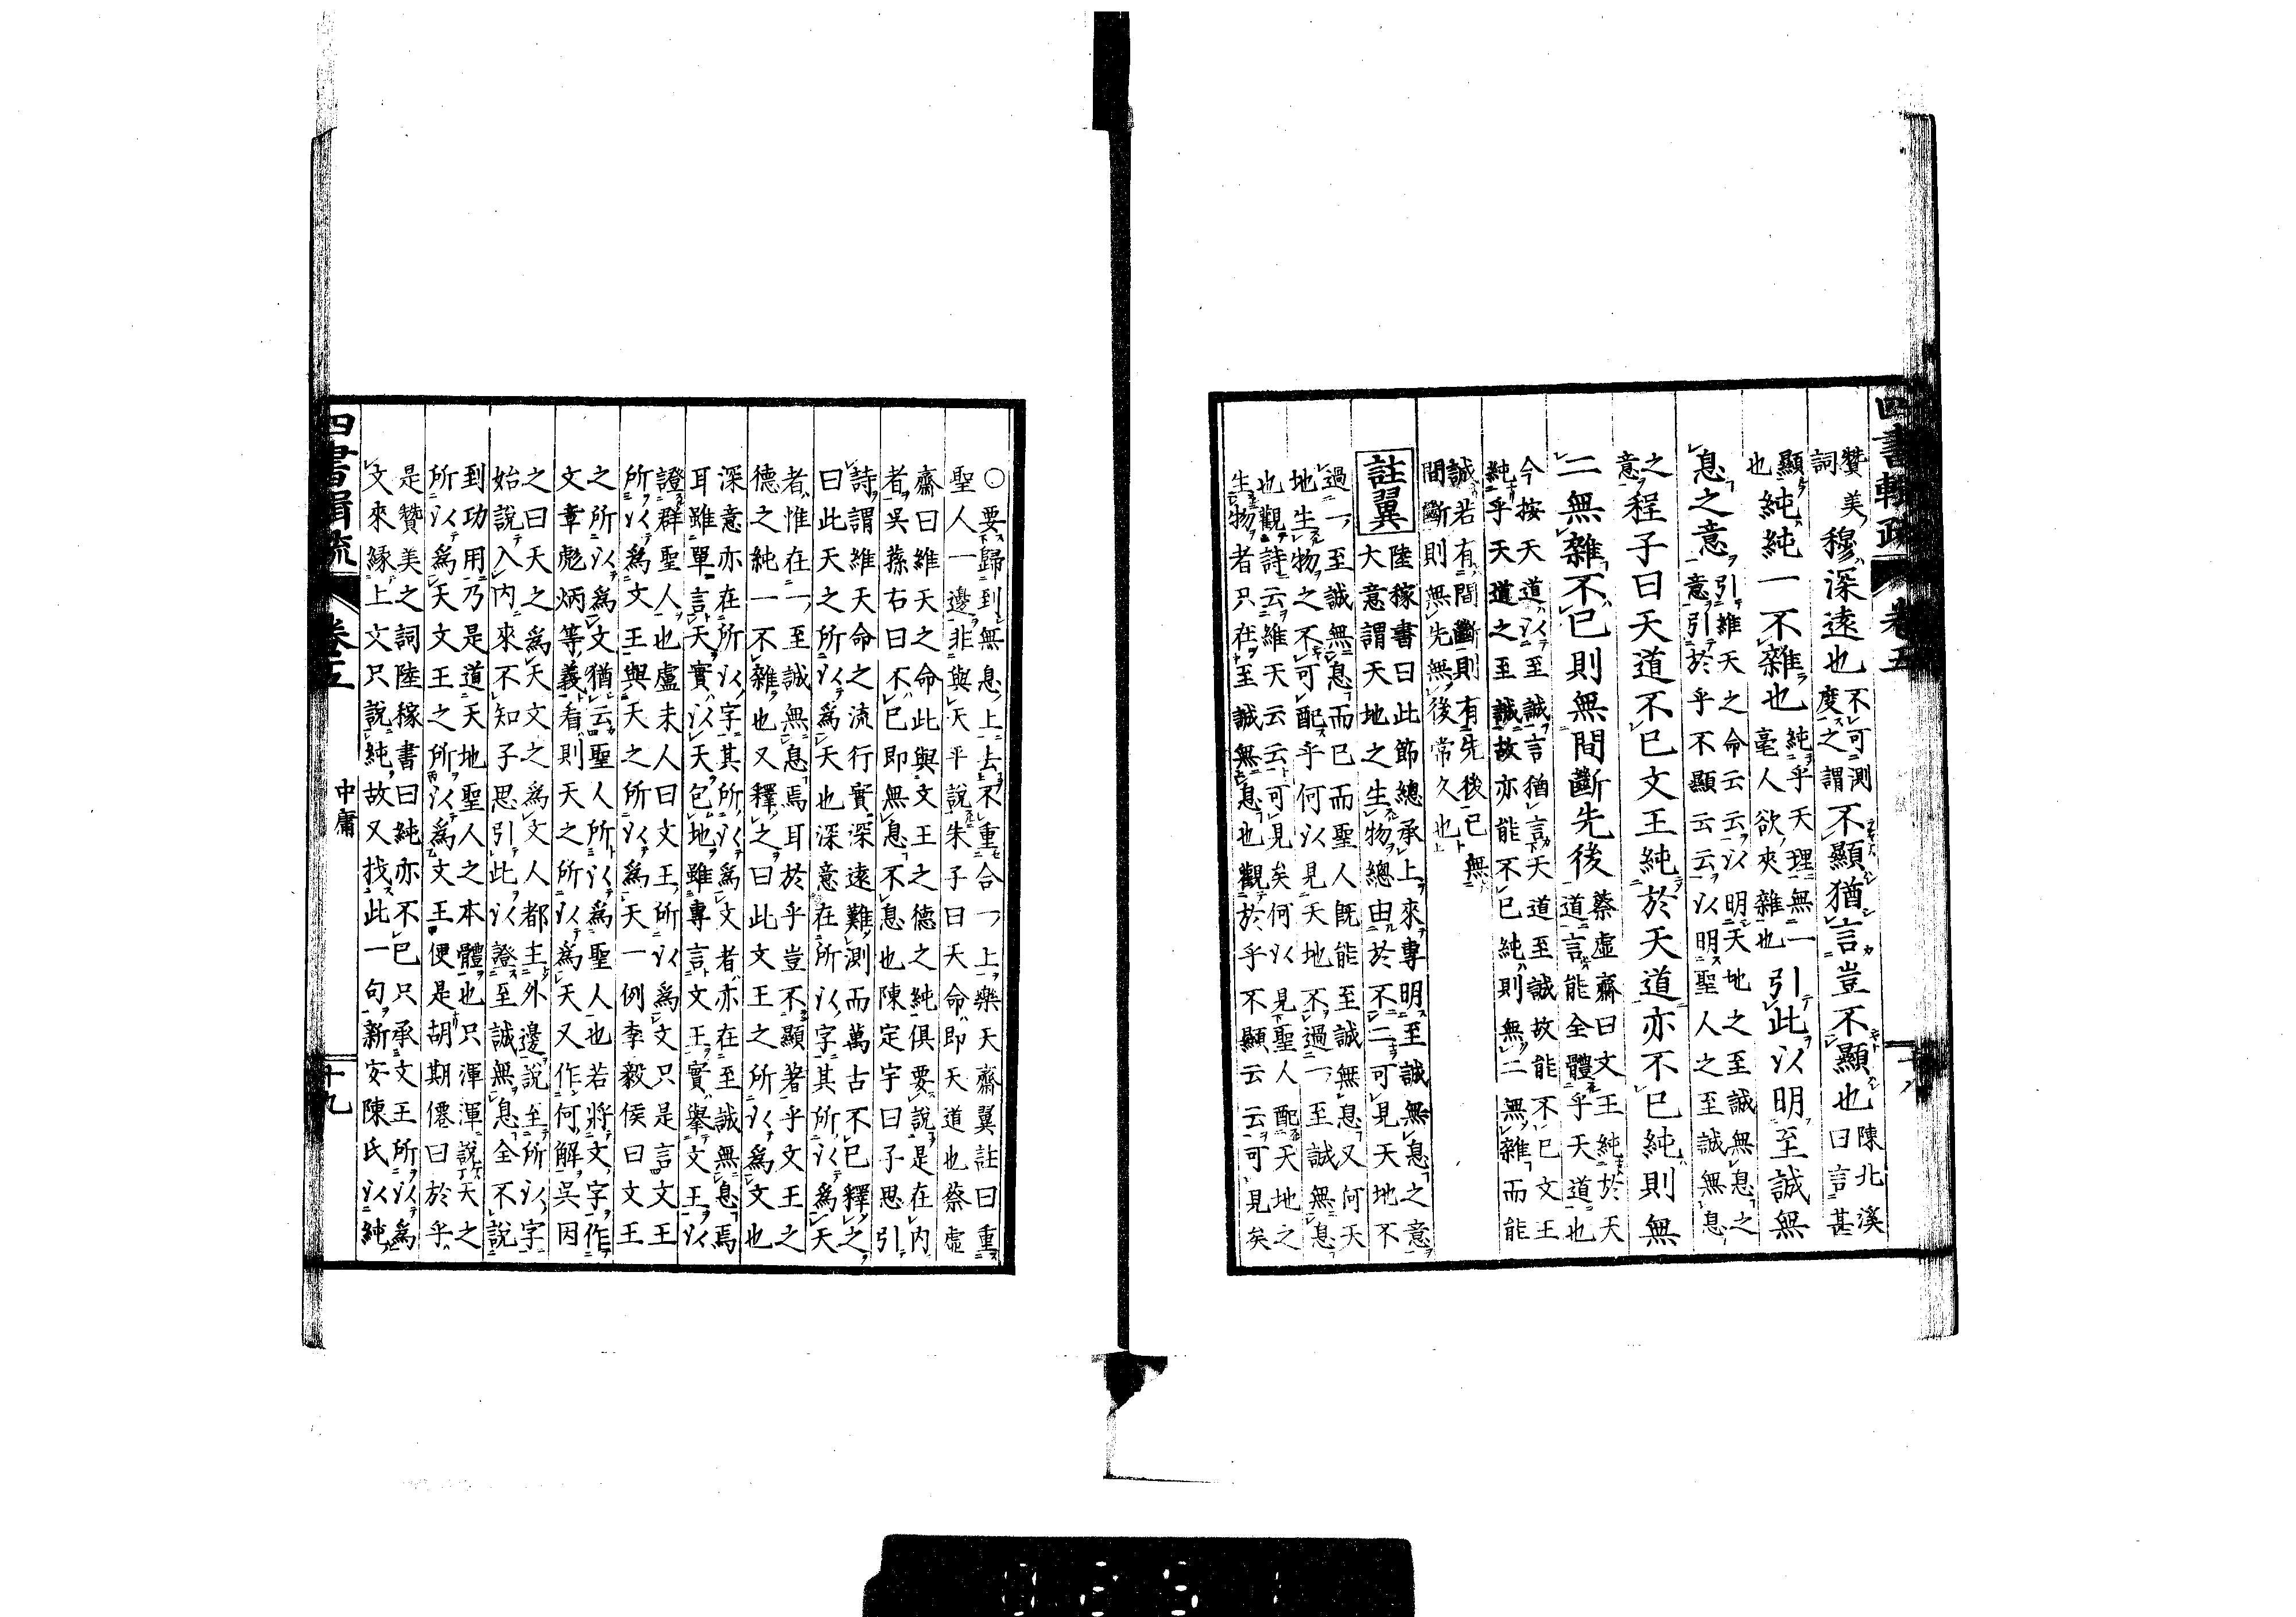 四書輯疏 卷五
贊美
詞
穆深遠也
不可測
度之謂
不顯猶言豈不顯也
陳北溪
曰言甚
顯
也
純純一不雜也
純乎天理無一
毫人欲夾雜也
引此以明至誠無
息之意
引維天之命云云以明天地之至誠無息之
意引於乎不顯云云以明聖人之至誠無息
之
意
程子曰天道不已文王純於天道亦不已純則無
二無雜不已則無間斷先後
蔡虛齋曰文王純於天
道言能全體乎天道也
今按天道以至誠言猶言天道至誠故能不已文王
純乎天道之至誠故亦能不已純則無二無雜而能
誠若有間斷則有先後已無
間斷則無先無後常久也
註翼
陸稼書曰此節總承上來專明至誠無息之意
大意謂天地之生物總由於不二可見天地不
過一至誠無息而已而聖人既能至誠無息又何天
地生物之不可配乎何以見天地不過一至誠無息
也觀詩云維天云云可見矣何以見聖人配天地之
生物者只在至誠無息也觀於乎不顯云云可見矣
○要歸到無息上去不重合一上樂天齋翼註曰重
聖人一邊非與天平說朱子曰天命即天道也蔡虛
齋曰維天之命此與文王之德之純俱要說是在內
者吳蓀右曰不已即無息不息也陳定宇曰子思引
詩謂維天命之流行實深遠難測而萬古不已釋之
曰此天之所以為天也深意在所以字其所以為天
者惟在一至誠無息焉耳於乎豈不顯著乎文王之
德之純一不雜也又釋之曰此文王之所以為文也
深意亦在所以字其所以為文者亦在至誠無息焉
耳雖單言天實以天包地雖專言文王實舉文王以
證群聖人也盧未人曰文王所以為文只是言文王
所以為文王與天之所以為天一例李毅侯曰文王
之所以為文猶云聖人所以為聖人也若將文字作
文章彪炳等義看則天之所以為天又作何解吳因
之曰天之為天文之為文人都主外邊說至所以字
始說入內來不知子思引此以證至誠無息全不說
到功用乃是道天地聖人之本體也只渾渾說天之
所以為天文王之所以為文王便是胡期僊曰於乎
是贊美之詞陸稼書曰純亦不已只承文王所以為
文來緣上文只說純故又找此一句新安陳氏以純
四書輯疏 卷五 中庸 十九